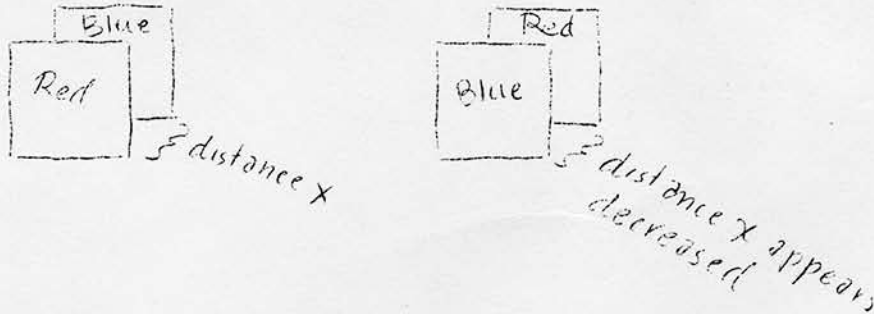 Blue
Red
distance x
Red
Blue
distance x appears
decreased